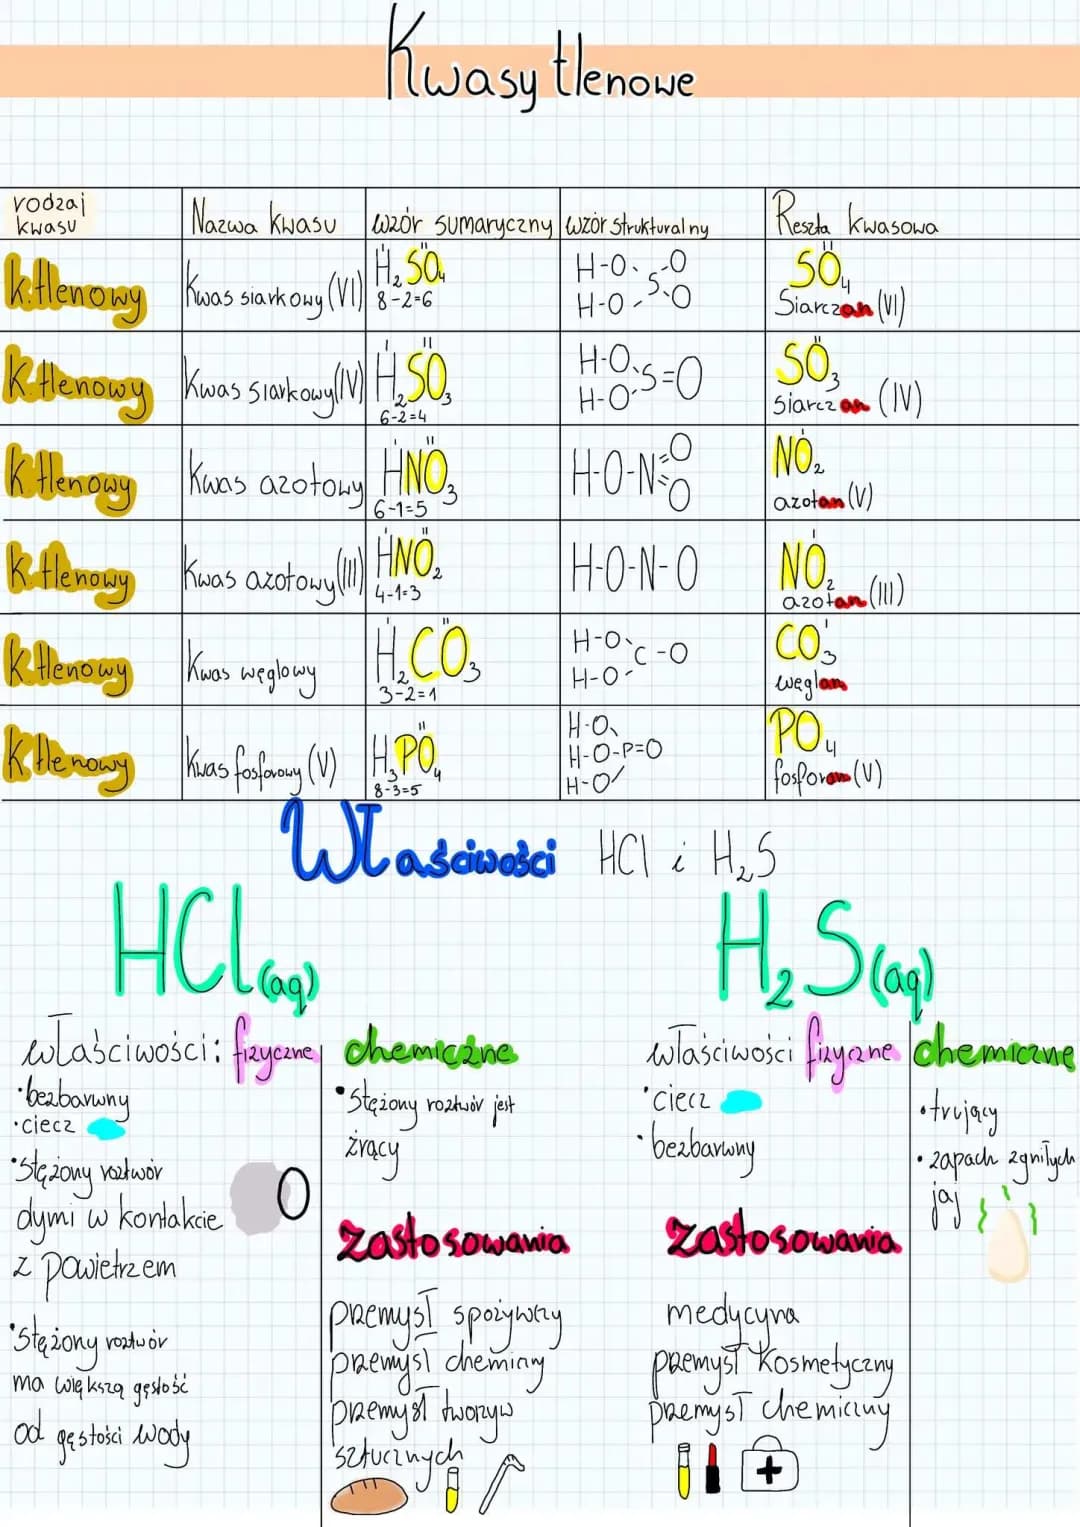 Kwasy tlenowe
rodzaj kwasu | Nazwa kwasu | wzór sumaryczny | wzór strukturalny | Reszta kwasowa
k.tlenowy | Kwas siarkowy (VI) | H₂SO₄ 8-2=6 | H-O S-O H-O O | SO₄ Siarczan (VI)
K.tlenowy | Kwas siarkowy (IV) | H₂SO₃ 6-2=4 | H-O S=O H-O | SO₃ siarczan (IV)
K.tlenowy | Kwas azotowy | HNO₃ 6-1=5 | H-O-N=O =O | NO₂ azotan (V)
K.tlenowy | Kwas azotowy (III) | HNO₂ 4-1=3 | H-O-N-O | NO₂ azotan (III)
K.tlenowy | Kwas węglowy | H₂CO₃ 3-2=1 | H-O C-O H-O | CO₃ węglan
K.tlenowy | Kwas fosforowy (V) | H₃PO₄ 8-3=5 | H-O H-O-P=O H-O | PO₄ fosforan (V)
Właściwości HCl i H₂S
HCl(aq)
właściwości: fizyczne
•bezbarwny
•ciecz
•Stężony roztwór
dymi w kontakcie
z powietrzem
•Stężony roztwór
ma większą gęstość
od gęstości wody
chemiczne
•Stężony roztwór jest
żrący
zastosowania
przemysł spożywczy
przemysł chemiczny
przemysł tworzyw
sztucznych
H₂S(aq)
właściwości fizyczne
•ciecz
•bezbarwny
chemiczne
•trujący
•zapach zgniłych
jaj
zastosowania
medycyna
przemysł kosmetyczny
przemysł chemiczny